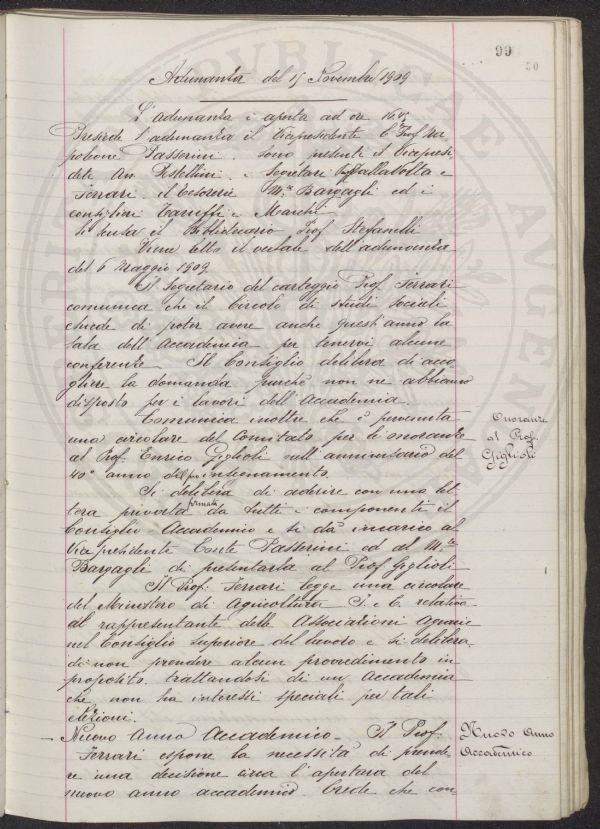 99
50
Adunanza del 15 Novembre 1909
L'adunanza è aperta ad ore 16 1/2
Presiede l'adunanza il Vicepresidente Cte Prof Na
poleone Passerini. Sono presenti il Vicepresi
dete Avv. Pestellini i Segretari Prof Dalla Volta e
Ferrari il tesoriere Mse Bargagli ed i
consiglieri Taruffi e Marchi
Si scusa il Bibliotecario Prof Stefanelli
Viene letto il verbale dell'adunanza
del 6 Maggio 1909.
Il Segretario del carteggio Prof. Ferrari
comunica che il Circolo di studi sociali
chiede di poter avere anche quest'anno la
sala dell'Accademia per tenervi alcune
conferenze. Il Consiglio delibera di acco
gliere la domanda purchè non ne abbiano
disposto per i lavori dell'Accademia.
Comunica inoltre che è pervenuta
una circolare del Comitato per le onoranze
al Prof. Enrico Giglioli nell'anniversario del
40° anno del suo insegnamento.
Si delibera di aderire con una let
tera privata firmata da tutti i componenti il
Consiglio Accademico e si dà incarico al
Vice presidente Conte Passerini ed al Mse
Bargagli di presentarla al Prof Giglioli
Il Prof. Ferrari legge una circolare
del Ministero di Agricoltura I. e C. relativa
al rappresentante delle Associazioni Agrarie
nel Consiglio Superiore del lavoro e si delibera
di non prendere alcun provvedimento in
proposito trattandosi di un Accademia
che non ha interessi speciali per tali
elezioni.
Nuovo Anno Accademico. Il Prof.
Ferrari espone la necessità di prende
re una decisione circa l'apertura del
nuovo anno accademico. Crede che con
Onoranze
al Prof.
Giglioli
Nuovo Anno
Accademico